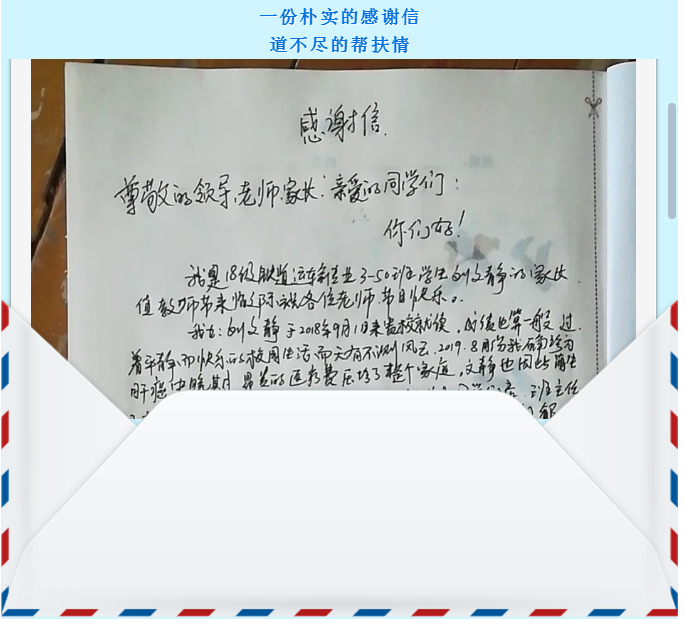 一份朴实的感谢信
道不尽的帮扶情
感谢信
尊敬的领导、老师、家长、亲爱的同学们：
你们好！
我是18级铁道运输专业3-50班学生刘文静的家长
值教师节来临之际祝各位老师节日快乐。
我女刘文静于2018年9月1日来贵校就读，成绩也算一般过
着平静而快乐的校园生活而天有不测风云，2019.8月份我
肝癌 的医疗费压垮了整个家庭，文静也因此萌生
班主任